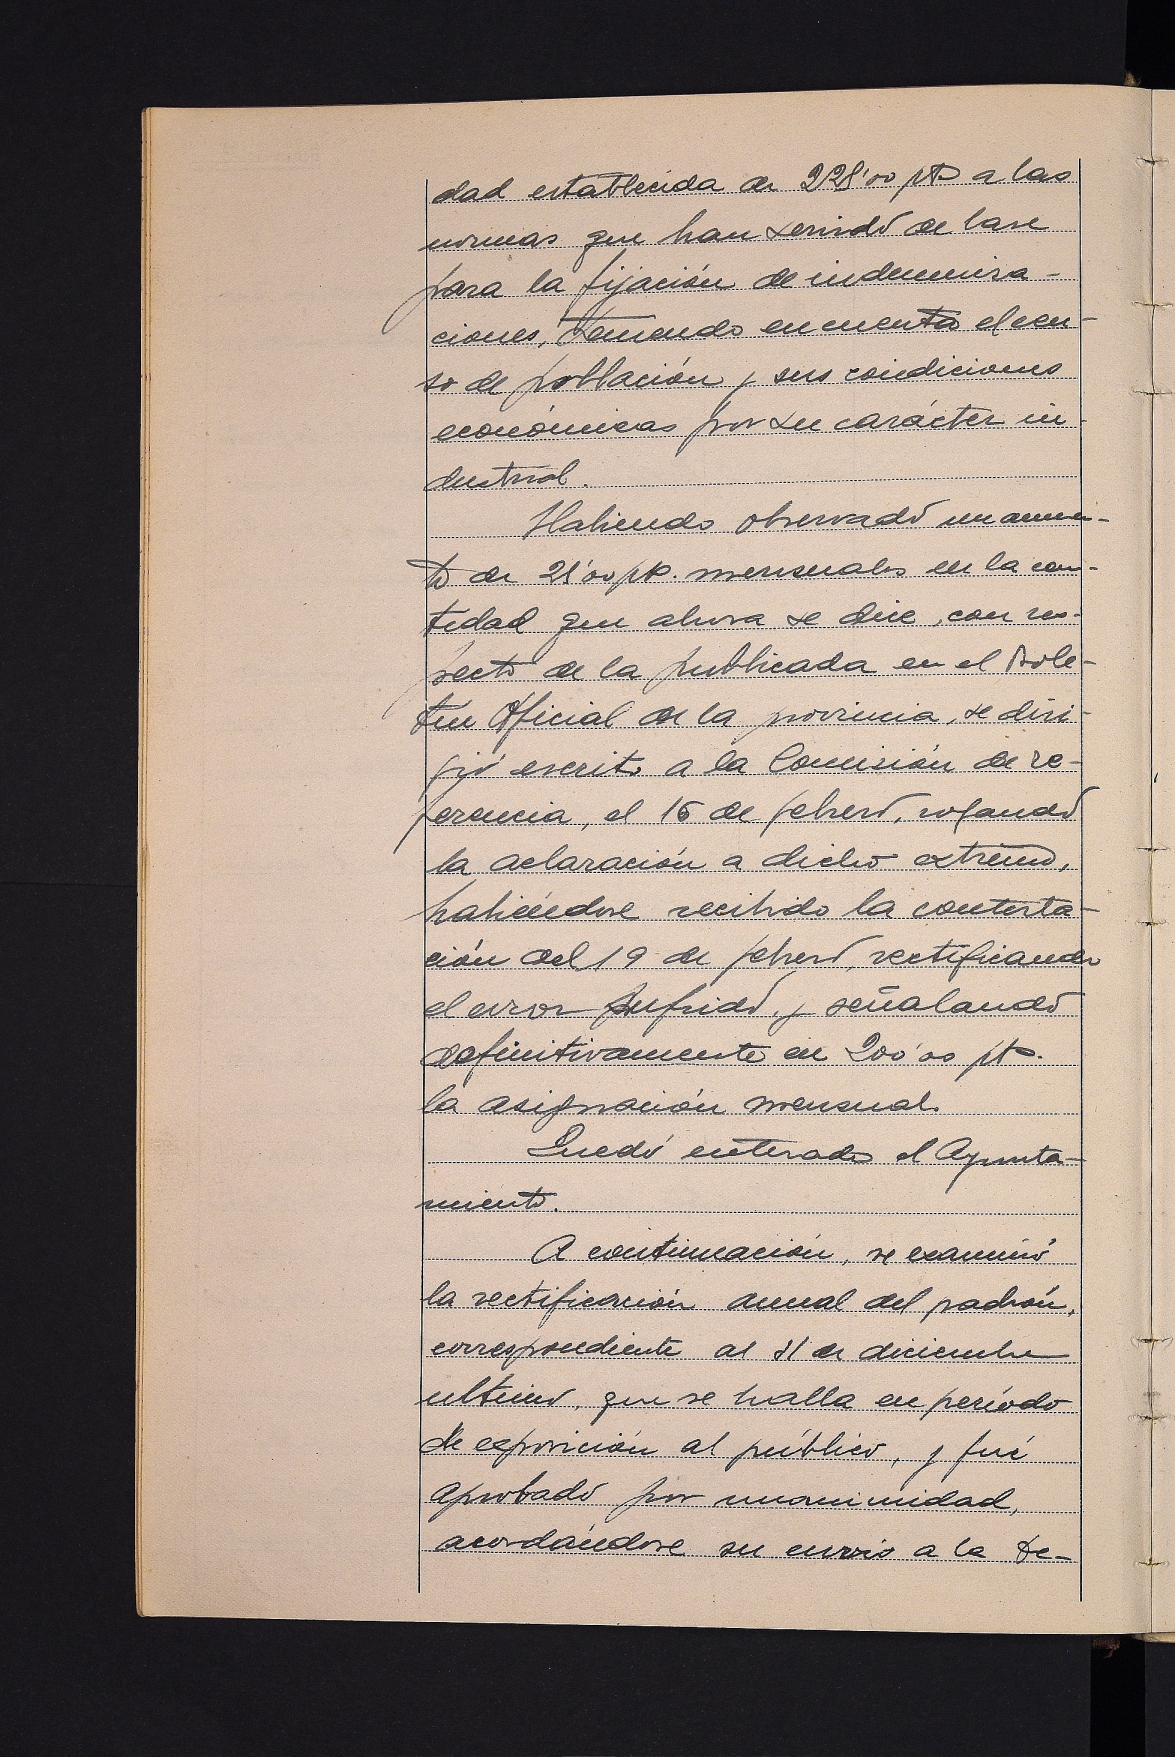 dad establecida de 228'00 pts a las
normas que han servido de base
para la fijación de indemniza-
ciones, tomando en cuenta el cen-
so de población y sus condiciones
económicas por su carácter in-
dustrial.
Habiendo observado un aumen-
to de 28'00 pts. mensuales en la can-
tidad que ahora se dice, con res-
pecto de la publicada en el Bole-
tin Oficial de la provincia, se diri-
gió escrito a la Comisión de re-
ferencia, el 16 de febrero, rogando
la aclaración a dicho extremo,
habiéndose recibido la contesta-
ción del 19 de febrero, rectificando
el error sufrido, y señalando
definitivamente en 200'00 pts.
la asignación mensual.
Quedó enterado el Ayunta-
miento.
A continuación, se examinó
la rectificación anual del padrón,
correspondiente al 31 de diciembre
ultimo, que se halla en período
de exposición al público, y fué
aprobado por unanimidad,
acordándose su envio a la De-